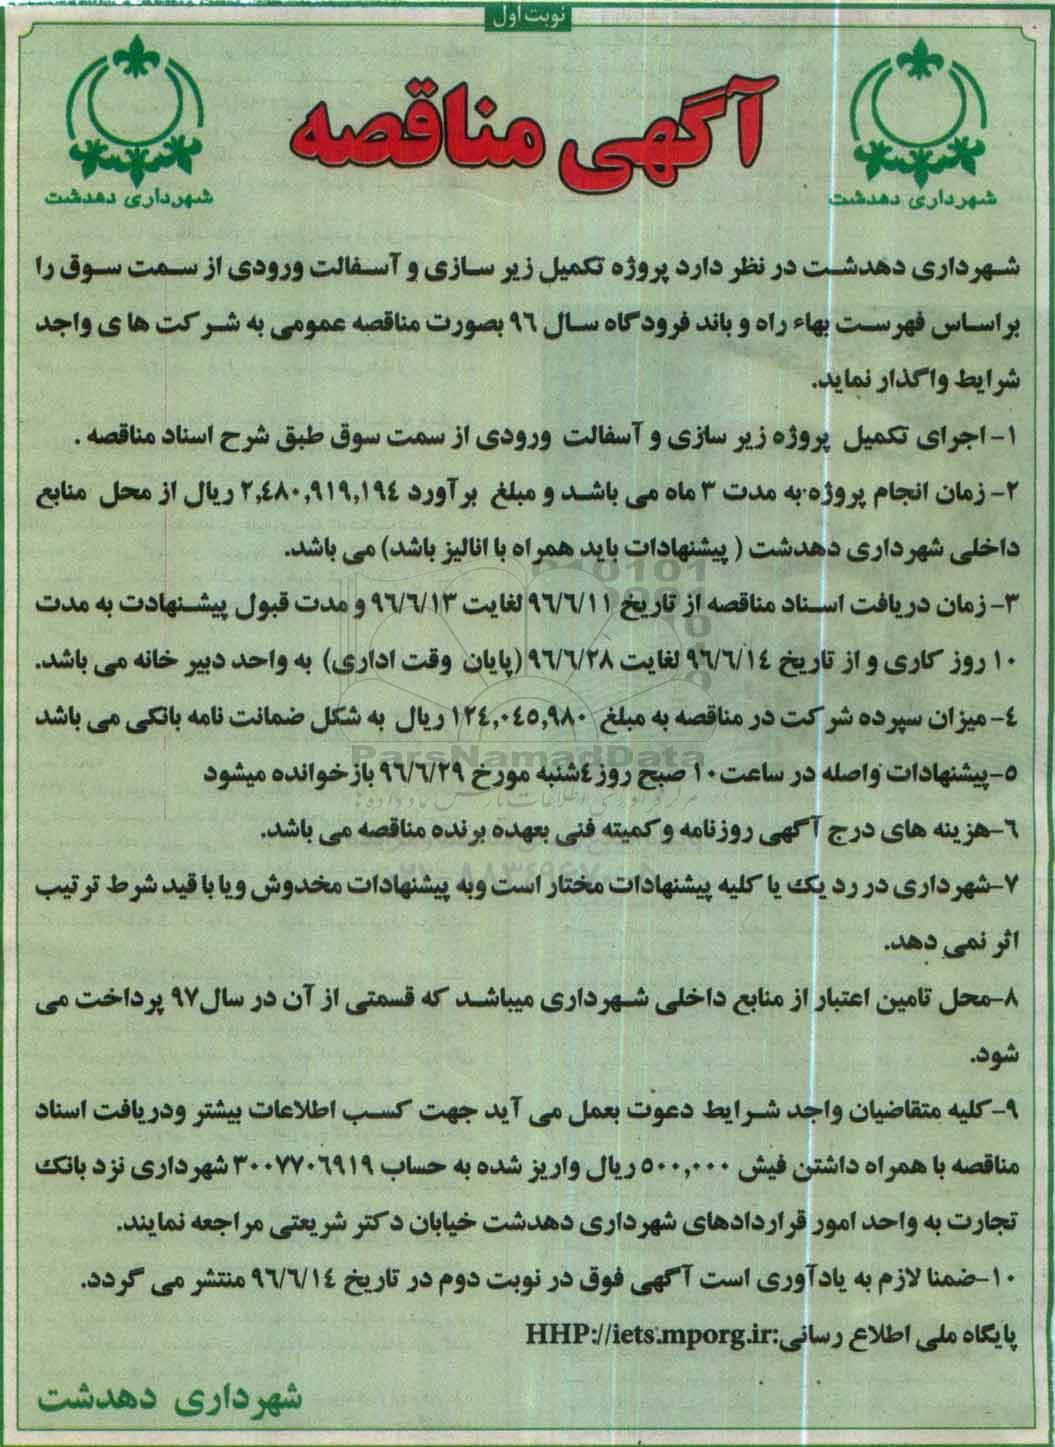 نوبت اول
آگهی مناقصه
شهرداری دهدشت
شهرداری دهدشت
شهرداری دهدشت در نظر دارد پروژه تکمیل زیر سازی و آسفالت ورودی از سمت سوق را
براساس فهرست بهاء راه و باند فرودگاه سال ۹۶ بصورت مناقصه عمومی به شرکت های واجد
شرایط واگذار نماید.
۱- اجرای تکمیل پروژه زیر سازی و آسفالت ورودی از سمت سوق طبق شرح اسناد مناقصه .
۲- زمان انجام پروژه به مدت ۳ ماه می باشد و مبلغ برآورد ۲,٤۸۰,۹۱۹,۱۹٤ ریال از محل منابع
داخلی شهرداری دهدشت ( پیشنهادات باید همراه با انالیز باشد) می باشد.
۳- زمان دریافت اسناد مناقصه از تاریخ ۹۶/۶/۱۱ لغایت ۹۶/۶/۱۳ و مدت قبول پیشنهادت به مدت
۱۰ روز کاری و از تاریخ ۹۶/۶/۱٤ لغایت ۹۶/۶/۲۸ (پایان وقت اداری) به واحد دبیر خانه می باشد.
٤- میزان سپرده شرکت در مناقصه به مبلغ ۱۲٤,۰٤۵,۹۸۰ ریال به شکل ضمانت نامه بانکی می باشد
ParsNamadData
۵-پیشنهادات واصله در ساعت۱۰ صبح روز٤شنبه مورخ ۹۶/۶/۲۹ بازخوانده میشود
۶-هزینه های درج آگهی روزنامه و کمیته فنی بعهده برنده مناقصه می باشد.
۷-شهرداری در رد یک یا کلیه پیشنهادات مختار است وبه پیشنهادات مخدوش ویا با قید شرط ترتیب
اثر نمی دهد.
۸-محل تامین اعتبار از منابع داخلی شهرداری میباشد که قسمتی از آن در سال۹۷ پرداخت می
شود.
۹-کلیه متقاضیان واجد شرایط دعوت بعمل می آید جهت کسب اطلاعات بیشتر ودریافت اسناد
مناقصه با همراه داشتن فیش ۵۰۰,۰۰۰ ریال واریز شده به حساب ۳۰۰۷۷۰۶۹۱۹ شهرداری نزد بانک
تجارت به واحد امور قراردادهای شهرداری دهدشت خیابان دکتر شریعتی مراجعه نمایند.
۱۰-ضمنا لازم به یادآوری است آگهی فوق در نوبت دوم در تاریخ ۹۶/۶/۱٤ منتشر می گردد.
پایگاه ملی اطلاع رسانی:HHP://iets.mporg.ir
شهرداری دهدشت